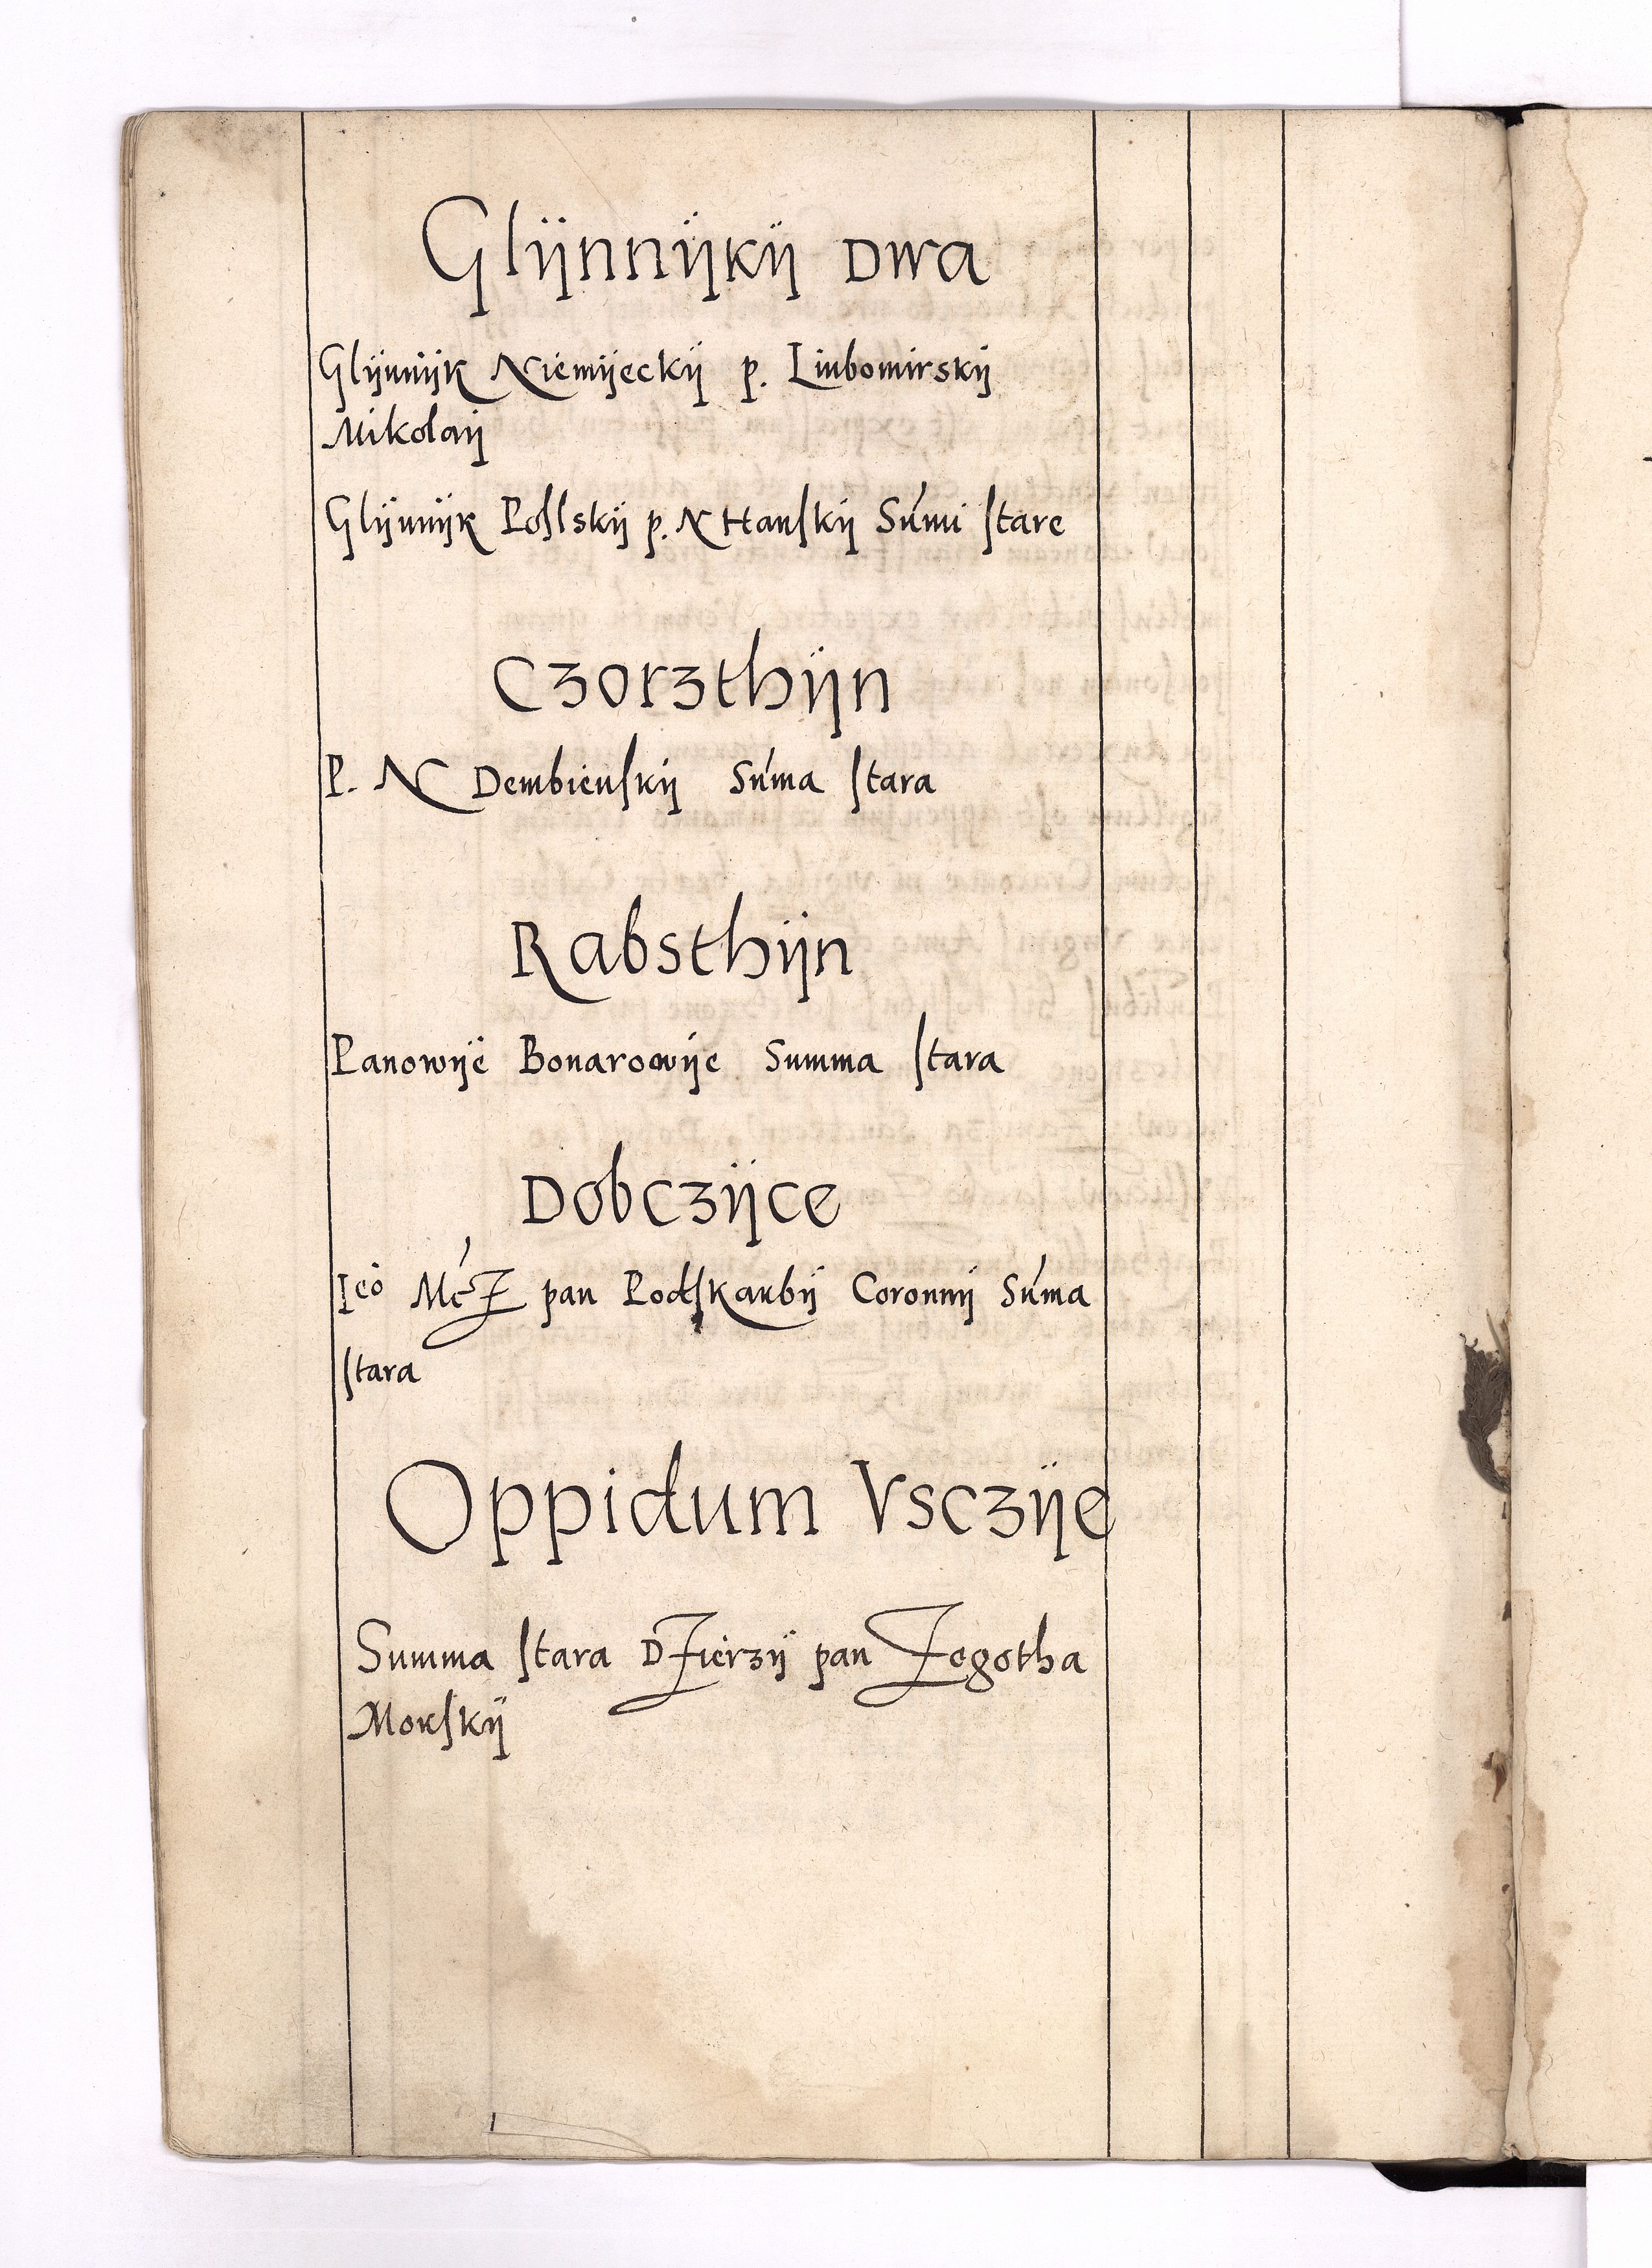 Glÿnnÿkÿ Dwa
Glÿnnÿk Niemÿeckÿ p. Liubomirskÿ
Mikolaÿ
Glÿnnÿk Polskÿ p. N Hanſkÿ Súmi ſtare
Czorzthÿn
P. N Dembienſkÿ Súma ſtara
Rabsthÿn
Panowÿe Bonarowÿe Summa ſtara
Dobczÿce
pan Podſkarbÿ Coronnÿ Súma
ſtara
Oppidum Vsczÿe
Summa ſtara Dzierzÿ pan Zegotha
Morſkÿ